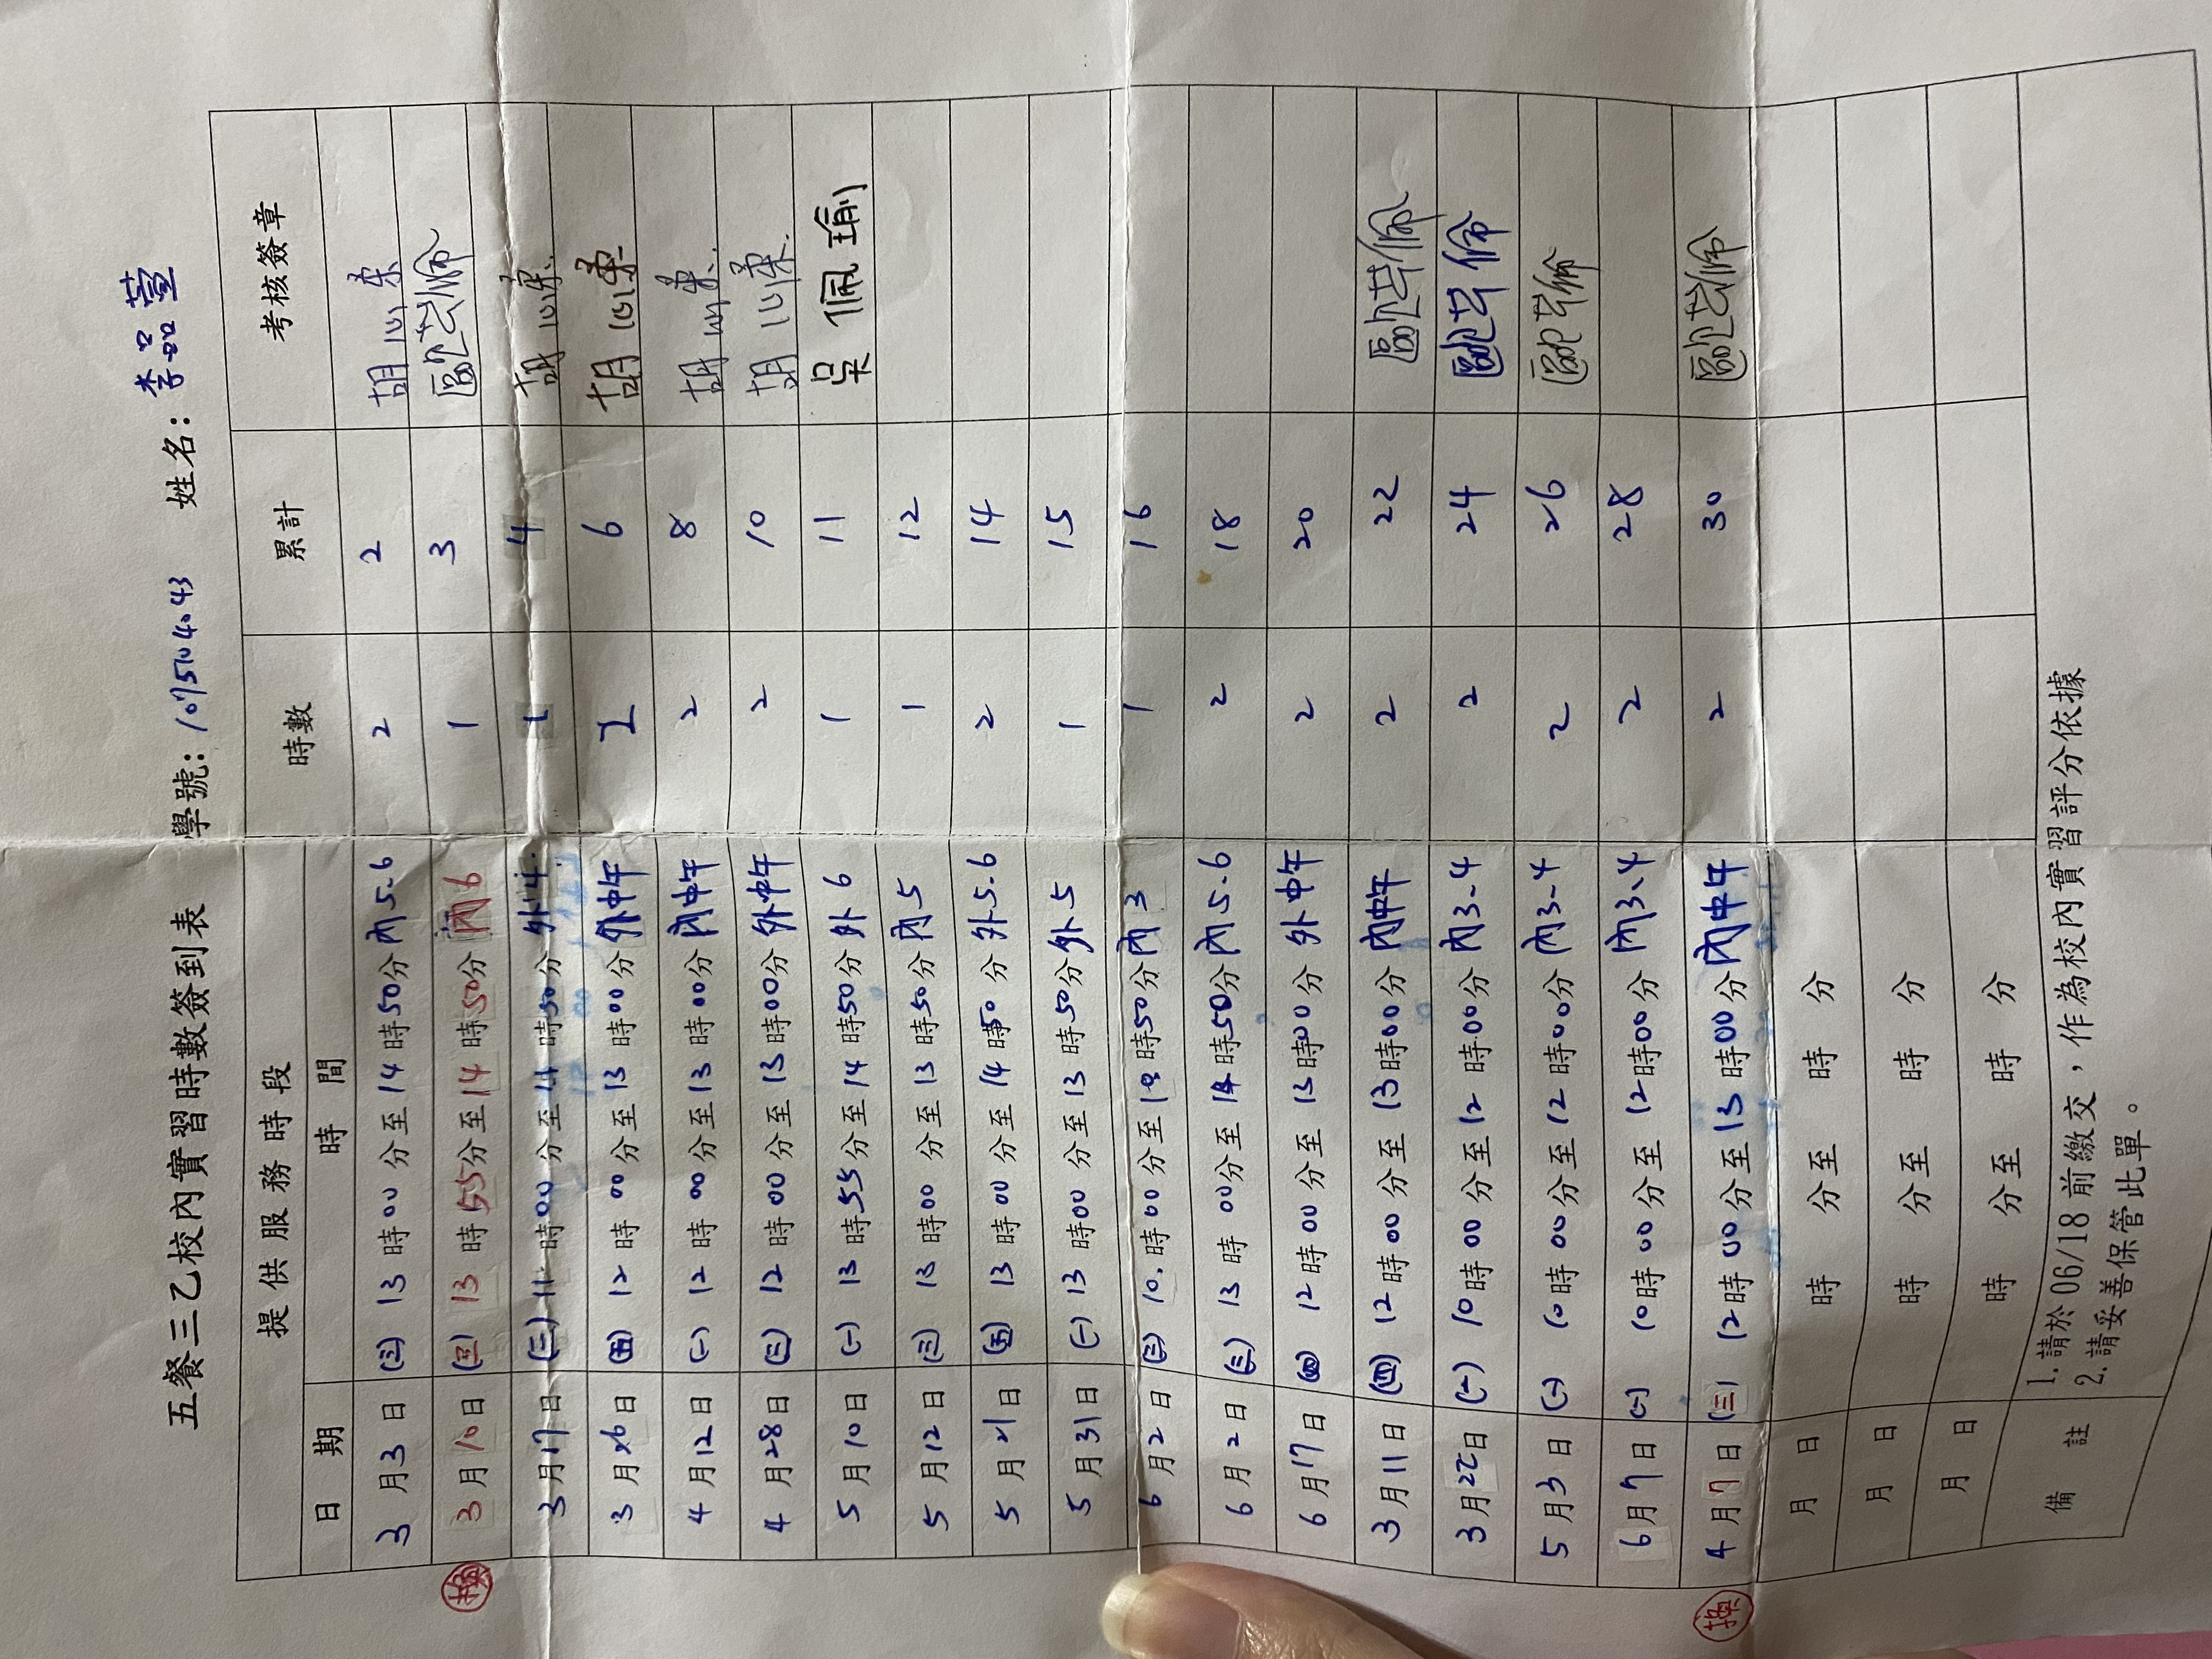 五餐三乙校內實習時數簽到表
學號: 1075104043 姓名: 李品萱
提供服務時段 時數 累計 考核簽章
日期 時間
3月3日 (三) 13時00分至14時50分 內5-6 2 2 胡心柔
換 3月10日 (三) 13時55分至14時50分 內6 1 3
3月17日 (三) 11時00分至11時50分 外4 1 4 胡心柔
3月26日 (五) 12時00分至13時00分 外中午 2 6 胡心柔
4月12日 (一) 12時00分至13時00分 內中午 2 8 胡心柔
4月28日 (三) 12時00分至13時00分 外中午 2 10 胡心柔
5月10日 (一) 13時55分至14時50分 外6 1 11 吳佩瑜
5月12日 (三) 13時00分至13時50分 內5 1 12
5月21日 (五) 13時00分至14時50分 外5.6 2 14
5月31日 (一) 13時00分至13時50分 外5 1 15
6月2日 (三) 10時00分至10時50分 內3 1 16
6月2日 (三) 13時00分至14時50分 內5.6 2 18
6月17日 (四) 12時00分至13時00分 外中午 2 20
3月11日 (四) 12時00分至13時00分 內中午 2 22
3月22日 (一) 10時00分至12時00分 內3-4 2 24
5月3日 (一) 10時00分至12時00分 內3-4 2 26
6月7日 (一) 10時00分至12時00分 內3-4 2 28
換 4月7日 (三) 12時00分至13時00分 內中午 2 30
月 日 時 分至 時 分
月 日 時 分至 時 分
月 日 時 分至 時 分
備註 1.請於06/18前繳交，作為校內實習評分依據
2.請妥善保管此單。